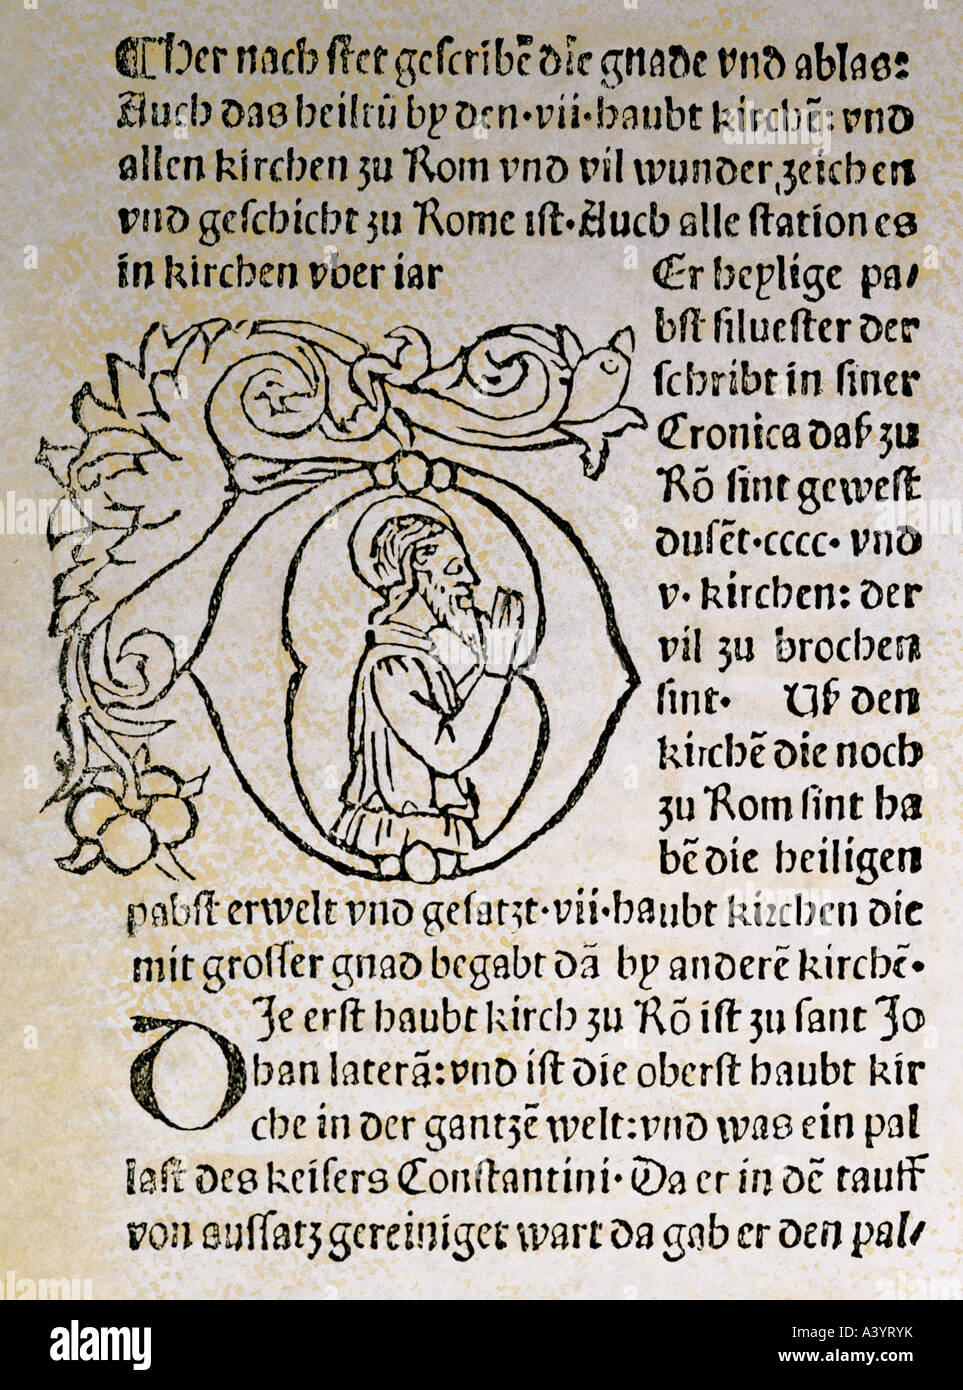 ¶Her nach stet gescribē die gnade vnd ablas:
Auch das heiltū by den·vii·haubt kirchē: vnd
allen kirchen zu Rom vnd vil wunder zeichen
vnd geschicht zu Rome ist·Auch alle stationes
in kirchen vber iar
Er heylige pa/
bst siluester der
schribt in siner
Cronica daß zu
Rō sint gewest
dusēt·cccc· vnd
v· kirchen: der
vil zu brochen
sint· Uß den
kirchē die noch
zu Rom sint ha
bē die heiligen
pabst erwelt vnd gesatzt·vii·haubt kirchen die
mit grosser gnad begabt dā by anderē kirchē·
DIe erst haubt kirch zu Rō ist zu sant Jo
han laterā: vnd ist die oberst haubt kir
che in der gantzē welt: vnd was ein pal
last des keisers Constantini· Da er in dē tauff
von aussatz gereiniget wart da gab er den pal/
alamy
Image ID: A3YRYK
www.alamy.com